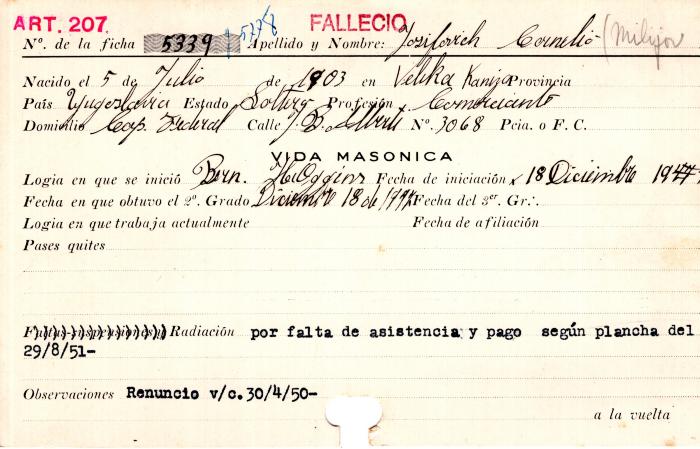 ART. 207.
FALLECIO
Nº. de la ficha 5339 5338 Apellido y Nombre: Josifovich Cornelio (Milijov
Nacido el 5 de Julio de 1903 en Velika Kaniza Provincia
País Yugoslavia Estado Soltero Profesión Comerciante
Domicilio Cap. Federal Calle J. B. Alberdi Nº. 3068 Pcia. o F. C.
VIDA MASONICA
Logia en que se inició Bern. H. O'Higgins Fecha de iniciación 18 Diciembre 1947
Fecha en que obtuvo el 2º. Grado Diciembre 18 de Fecha del 3er. Gr∴
Logia en que trabaja actualmente Fecha de afiliación
Pases quites
Faltas-suspensiones y Radiación por falta de asistencia y pago según plancha del
29/8/51-
Observaciones Renuncio v/c. 30/4/50-
a la vuelta